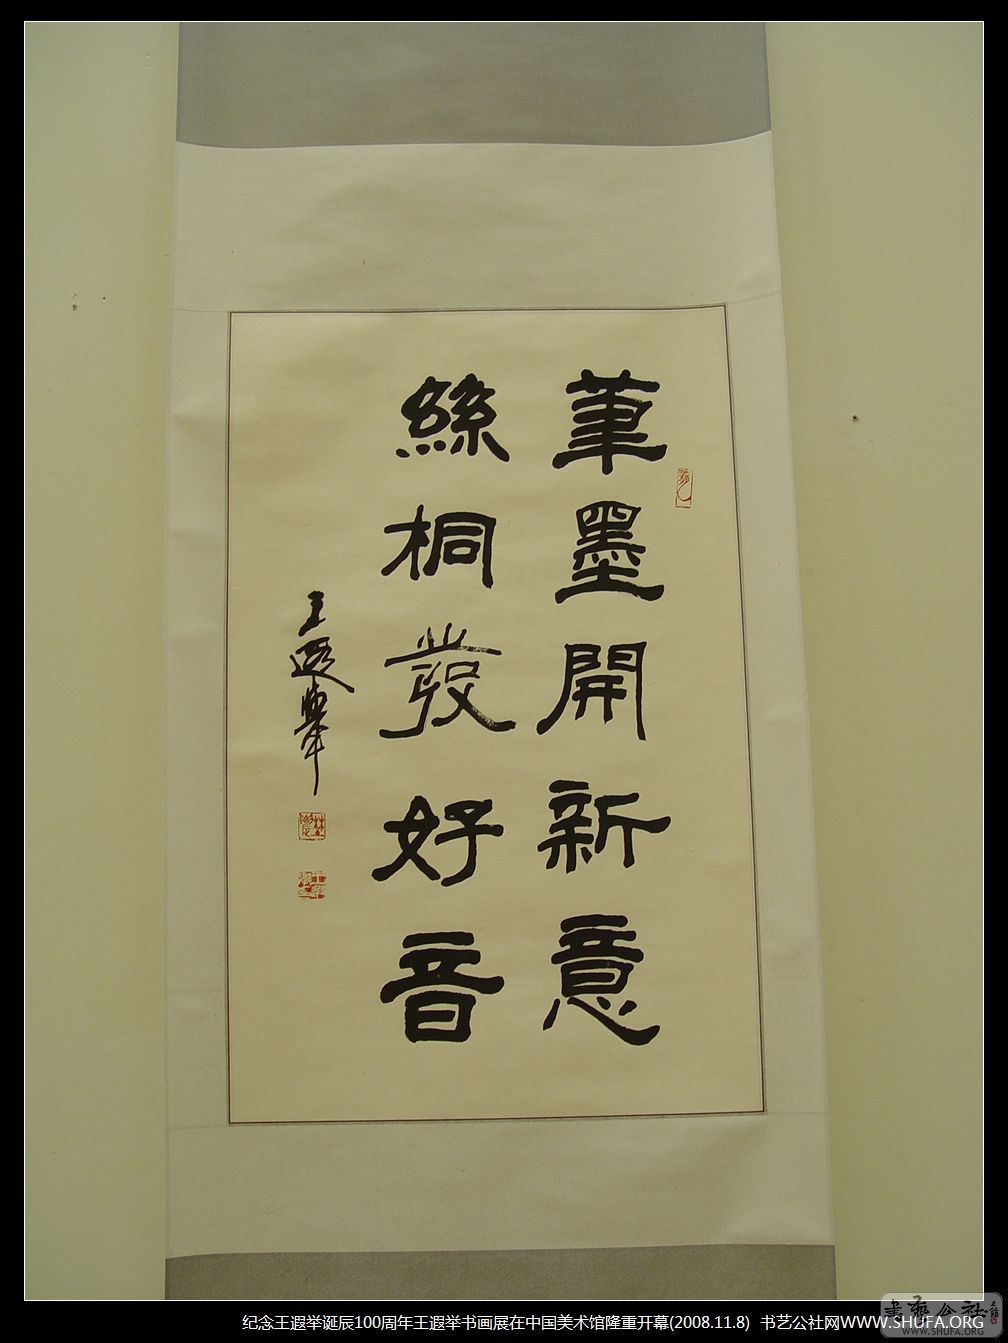 筆墨開新意
絲桐發好音
王遐舉
纪念王遐举诞辰100周年王遐举书画展在中国美术馆隆重开幕(2008.11.8) 书艺公社网WWW.SHUFA.ORG
書艺公社
WWW.SHUFA.ORG